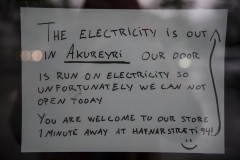 THE ELECTRICITY IS OUT
IN AKUREYRI OUR DOOR
IS RUN ON ELECTRICITY SO
UNFORTUNATELY WE CAN NOT
OPEN TODAY
YOU ARE WELCOME TO OUR STORE
1 MINUTE AWAY AT HAFNARSTRÆTI 94!